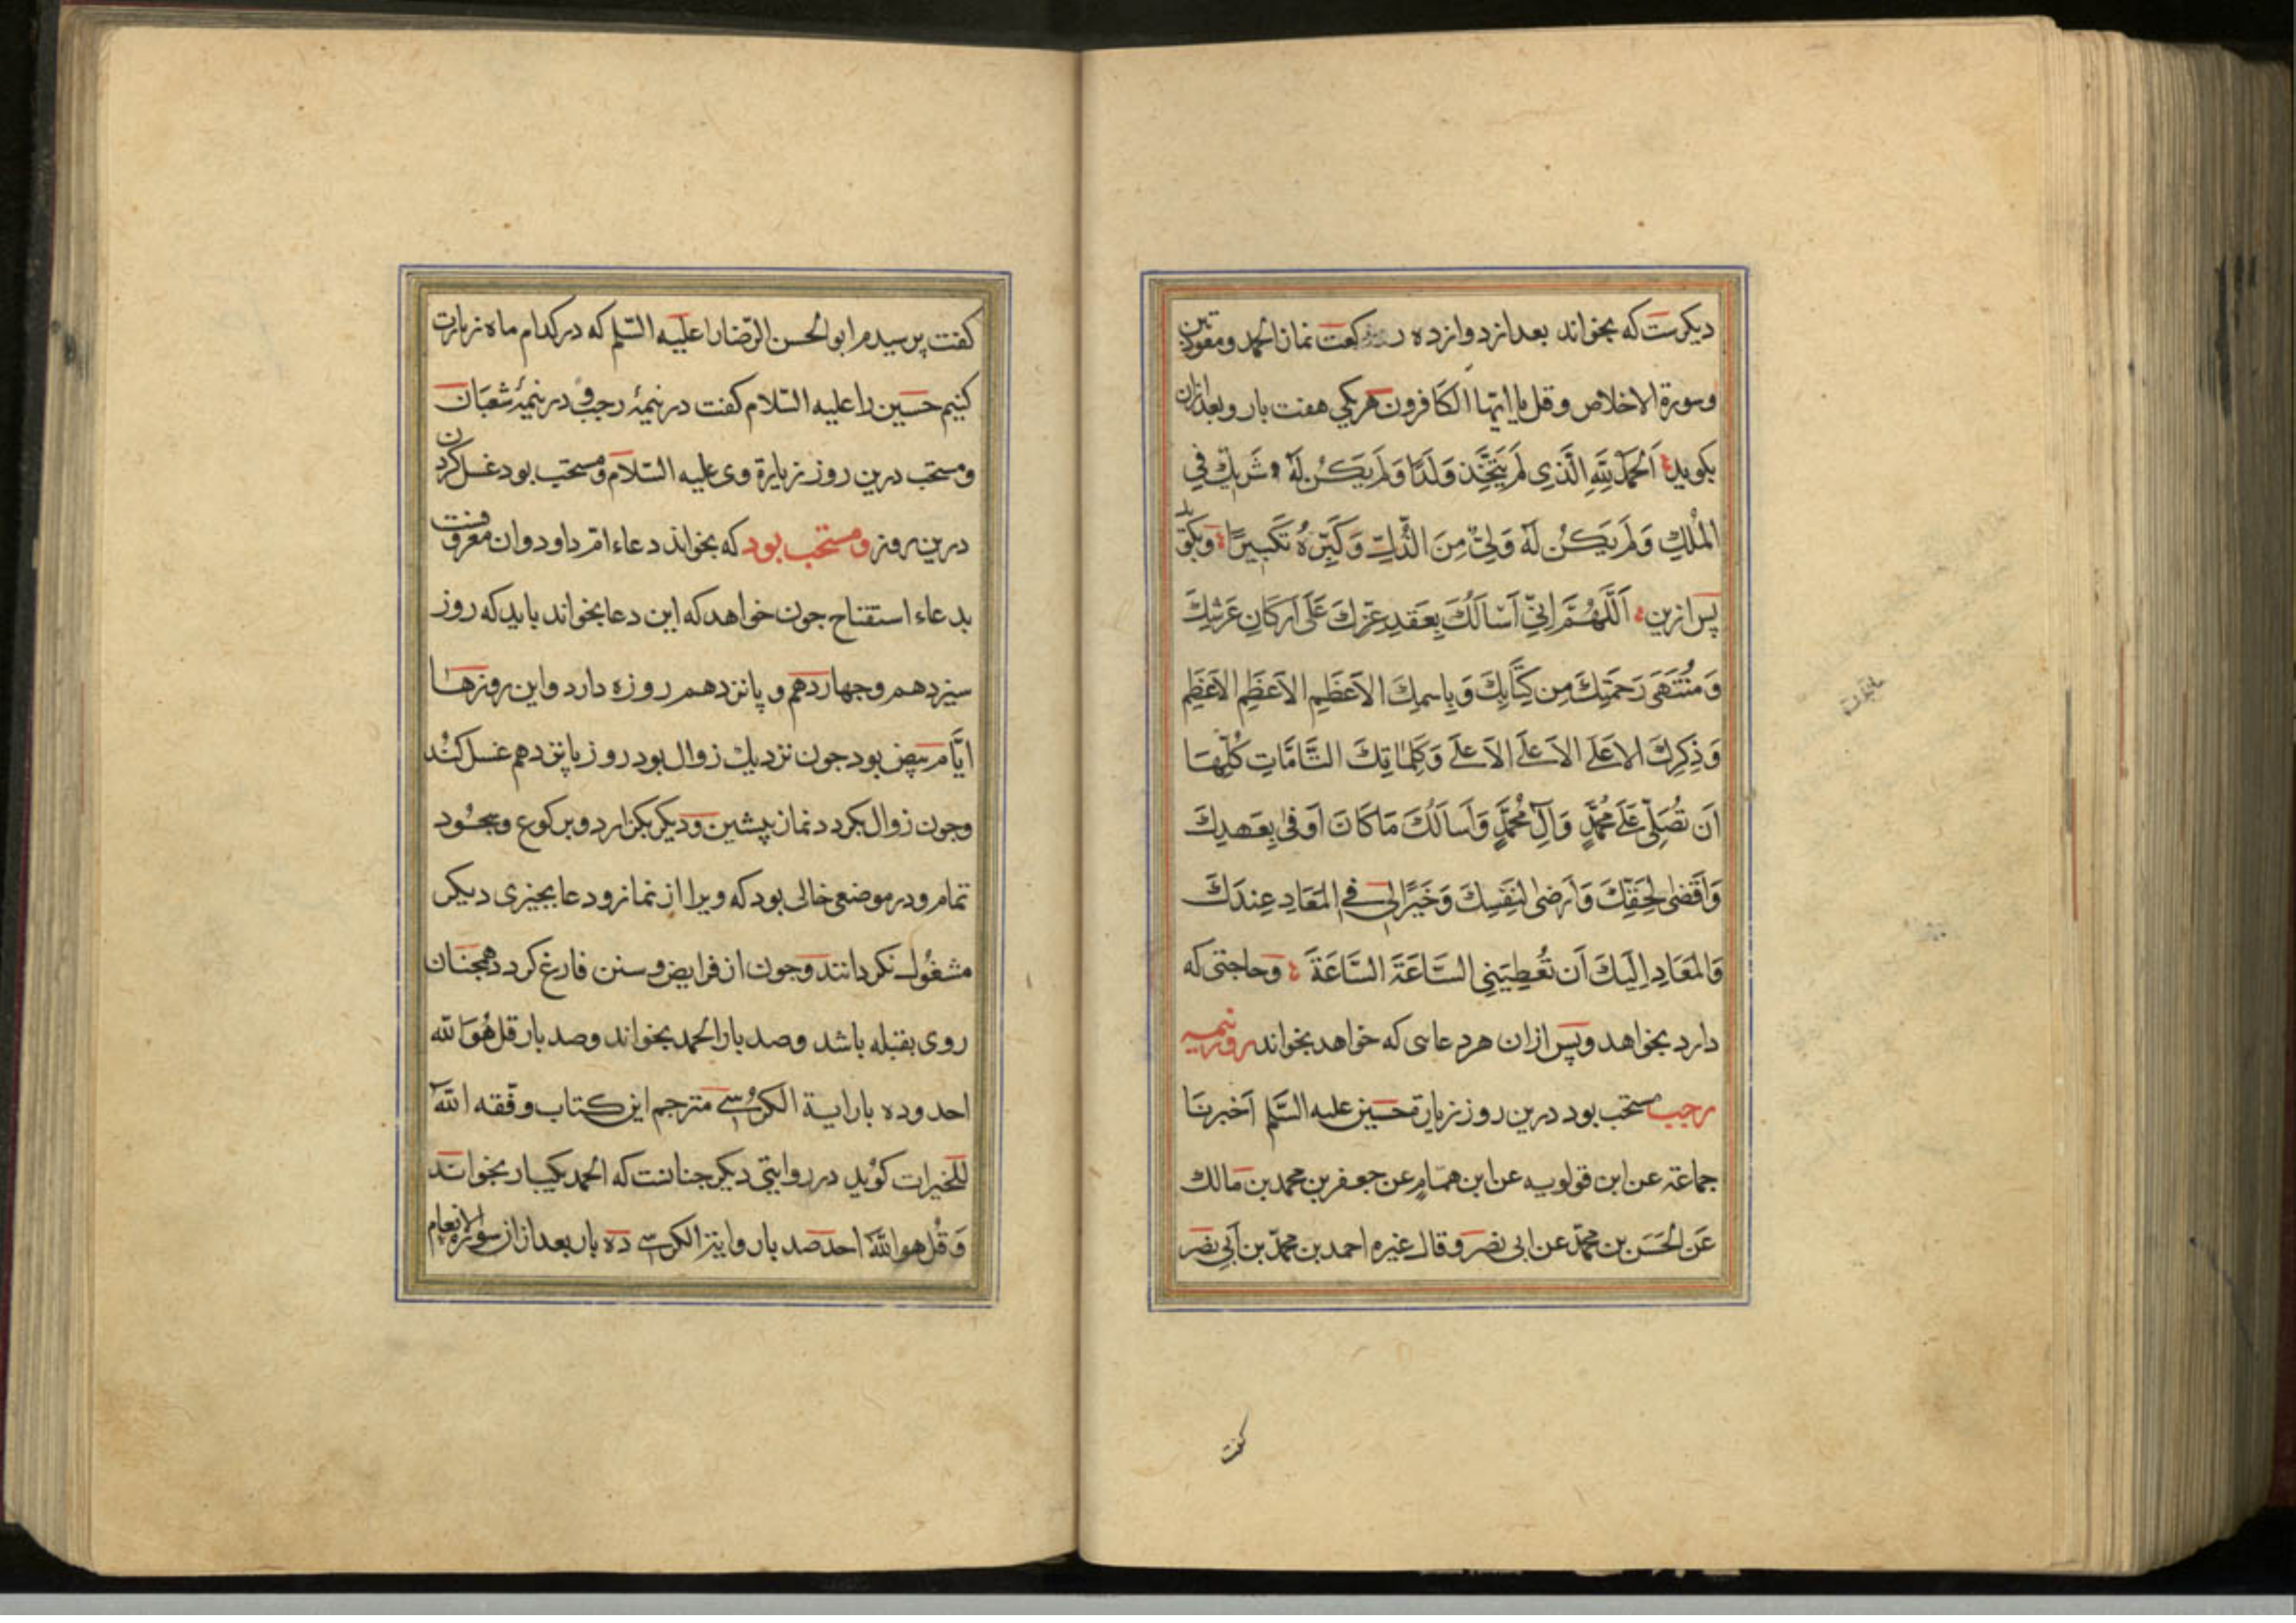 دیکرست که بخواند بعد از دوازده رکعت نماز الحمد ومعوذتین
وسورة الاخلاص وقل یا ایها الکافرون هریکی هفت بار وبعد ازان
بکوید اَلحَمدُ لِلّٰهِ الَّذِی لَم یَتَّخِذ وَلَدًا وَلَم یَکُن لَهُ شَرِیكٌ فِی
المُلكِ وَلَم یَکُن لَهُ وَلِیٌّ مِنَ الذُّلِّ وَکَبِّرهُ تَکبِیرًا وبکوید
پس ازین اَللّٰهُمَّ اِنِّی اَسأَلُكَ بِعَقدِ عِزِّكَ عَلَی اَرکَانِ عَرشِكَ
وَمُنتَهَی رَحمَتِكَ مِن کِتَابِكَ وَبِاسمِكَ الاَعظَمِ الاَعظَمِ الاَعظَمِ
وَذِکرِكَ الاَعلَی الاَعلَی الاَعلَی وَکَلِمَاتِكَ التَّامَّاتِ کُلِّهَا
اَن تُصَلِّیَ عَلَی مُحَمَّدٍ وَآلِ مُحَمَّدٍ وَاَسأَلُكَ مَا کَانَ اَوفٰی بِعَهدِكَ
وَاَقضٰی لِحَقِّكَ وَاَرضٰی لِنَفسِكَ وَخَیرًا لِی فِی المَعَادِ عِندَكَ
وَالمَعَادِ اِلَیكَ اَن تُعطِیَنِی السَّاعَةَ السَّاعَةَ وحاجتی که
دارد بخواهد وپس ازان هر دعایی که خواهد بخواند روز نیمه
رجب مستحب بود درین روز زیارة حسین علیه السّلم اَخبرنَا
جماعة عن ابن قولویه عن ابن همّام عن جعفر بن محمد بن مالك
عَن الحَسَن بن محمّد عن ابی نصر وقال غیره احمد بن محمّد بن اَبی نصر
کفت
کفت پرسیدم ابو الحسن الرّضا را علیه السّلم که در کدام ماه زیارت
کنیم حسین را علیه السّلام کفت در نیمهٔ رجب و در نیمهٔ شعبان
ومستحب درین روز زیارة وی علیه السّلام ومستحب بود غسل کردن
درین روز ومستحب بود که بخواند دعاء امّ داود وان معروفست
بدعاء استفتاح جون خواهد که این دعا بخواند باید که روز
سیزدهم وجهاردهم و پانزدهم روزه دارد واین روزها
ایّام بیض بود جون نزدیك زوال بود روز پانزدهم غسل کند
وجون زوال بکردد نماز پیشین ودیکر بکزارد وبرکوع وسجود
تمام ودر موضعی خالی بود که ویرا از نماز ودعا بجیزی دیکر
مشغول نکردانند وجون از فرایض وسنن فارغ کردد همجنان
روی بقبله باشد وصد بار الحمد بخواند وصد بار قل هُوَ اللّه
احد وده بار ایة الکرسی مترجم این کتاب وفقه اللّه
للخیرات کوید در روایتی دیکر جنانست که الحمد یکبار بخواند
وَقل هو اللّه احد صد بار وایة الکرسی ده بار بعد ازان سورة الانعام